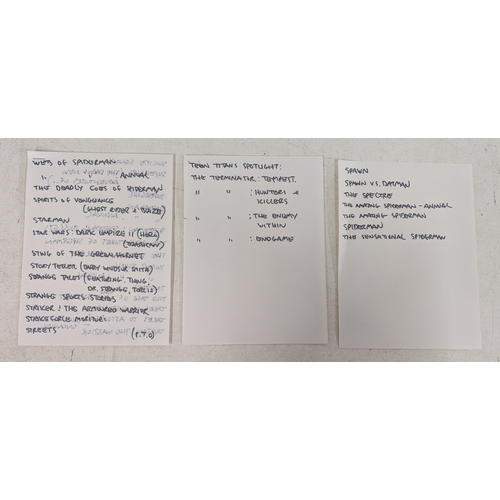 WEBS OF SPIDERMAN
" " ANNUAL
THE DEADLY FOES OF SPIDERMAN
SPIRITS OF VENGEANCE
(GHOST RIDER & BLAZE)
STARMAN
STAR WARS: DARK EMPIRE II (HERO)
(DARKHORSE)
STING OF THE GREEN HORNET
STORY TELLER (BARRY WINDSOR SMITH)
STRANGE TALES (FEATURING: THING,
DR. STRANGE,
STRANGE SPORTS STORIES
STRYKER: THE ARMOURED WARRIOR
STRIKEFORCE: MORITURI
STREETS (P.T.O)
TEEN TITANS SPOTLIGHT:
THE TERMINATOR: TEMPEST.
" " : HUNTERS &
KILLERS
" " : THE ENEMY
WITHIN
" " : ENDGAME
SPAWN
SPAWN VS. BATMAN
THE SPECTRE
THE AMAZING SPIDERMAN - ANNUAL
THE AMAZING SPIDERMAN
SPIDERMAN
THE SENSATIONAL SPIDERMAN